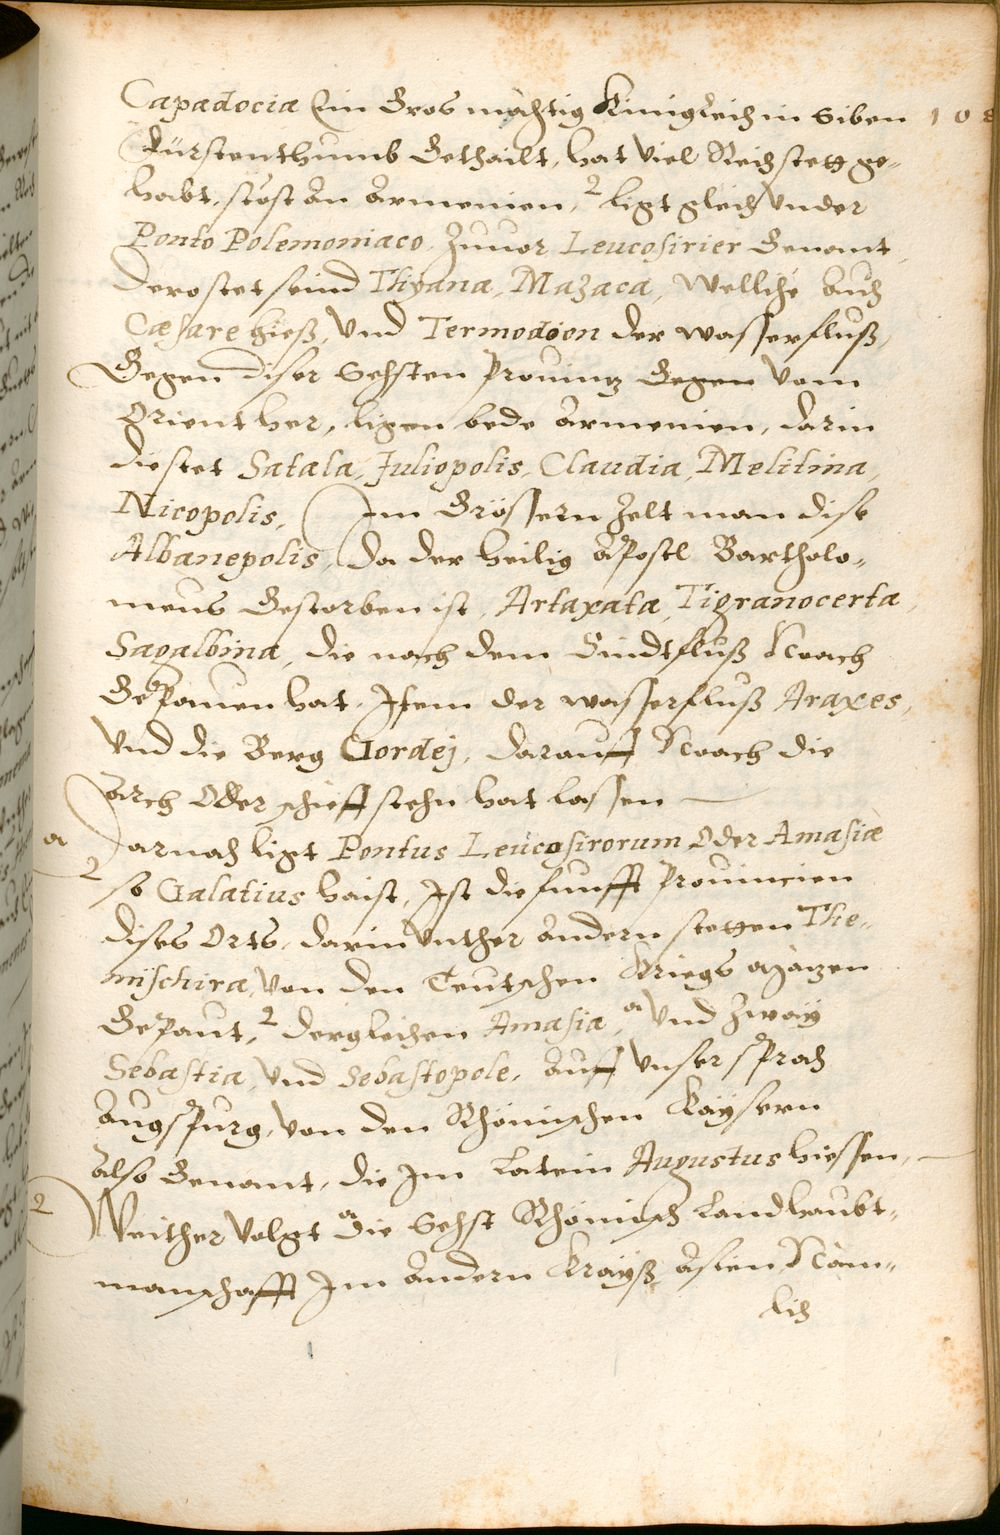 Capadocia Ein Gros mächtig Künigreich in Siben 108
Fürstenthumb Gethailt, hat viel Reichstett ge„
habt, stost an Armenien, 2 ligt gleich Vnder
Ponto Polemoniaco, Zuuor Leucosirier Genant,
Der ostet seind Thyana, Mazaca, Wellche auch
Cæsare hieß, Vnd Termodoon der wasserfluß,
Gegen diser Sehsten Prouintz Gegen Vom
Orient her, ligen bede Armenien, darin
die stet Satala, Juliopolis, Claudia, Melitina,
Nicopolis, Im Grössern Zelt man dise
Albanepolis, Da der heilig Apostel Bartholo„
meus Gestorben ist, Artaxata, Tigranocerta,
Sagalbina, die nach dem Sindtfluß Noach
Gepauen hat, Item der wasserfluß Araxes,
Vnd die Berg Gordej, darauff Noach die
Arch Oder schieff stehn hat lassen
a Darnach ligt Pontus Leucosirorum Oder Amasiæ
2 so Galatius haist, Ist die funfft Prouincien
dises Orts, darin Vnther andern stetten The„
mischira, Von den Teutschen Kriegs
Gepaut, 2 dergleichen Amasia, a Vnd Zwaÿ
Sebastia, Vnd Sebastopole, Auff Vnser sprach
Augspurg, Von den Rhömischen Kaÿsern
also Genant, die Im Latein Augustus hiessen,
2 Weither Volgt a die Sehst Rhömisch Landhaubt„
manschafft Im andern Kraÿß, Asien Näm„
lich